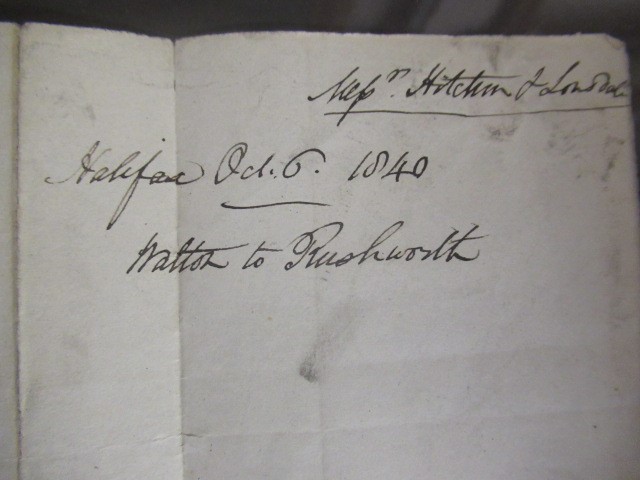 Messrs. Hitchin & Lonsdale
Halifax Oct. 6. 1840
Walton to Rushworth